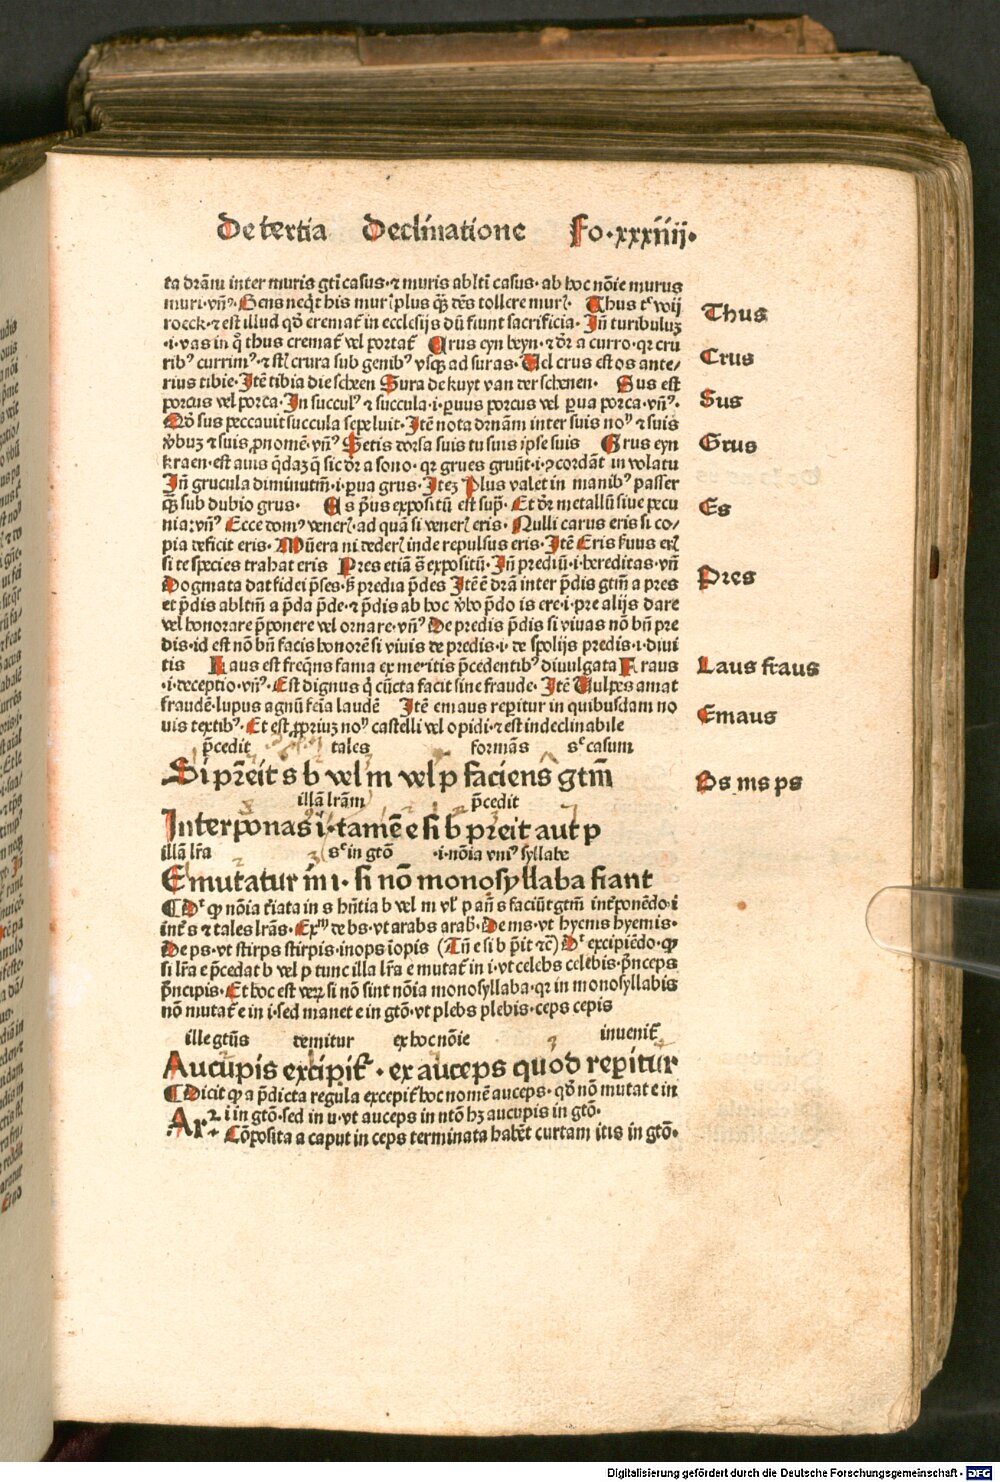 De tertia Declinatione Fo.xxxiiij.
ta drãm inter muris gtĩ casus.⁊ muris abltĩ casus. ab hoc nõie murus
muri.vñ⁹. Gens neq̃t his murꝭ plus q̃ tẽs tollere murꝭ. Thus tᵉ wij
Thus
roeck.⁊ est illud qd̃ cremat̃ in ecclesijs dũ fiunt sacrificia. Iñ turibuluȝ
.i.vas in q̃ thus cremat̃ vel portat̃ Crus eyn beyn.⁊ dr̃ a curro.qr cru
Crus
rib⁹ currim⁹.⁊ st̃ crura sub genib⁹ vsqȝ ad suras. Uel crus est os ante/
rius tibie. Itẽ tibia die scheen Sura de kuyt van der schenen. Sus est
porcus vel porca. In succul⁹ ⁊ succula.i.puus porcus vel pua porca.vñ⁹.
Sus
Qd̃ sus peccauit succula sepe luit. Itẽ nota drñam inter suis no⁹ ⁊ suis
v̾buȝ ⁊ suis ꝓnomẽ.vñ⁹ Setis dorsa suis tu suis ipse suis Grus eyn
Grus
kraen.est auis q̃daȝ q̃ sic dr̃ a sono. qr grues gruũt.i.ↄcordãt in volatu
Iñ grucula diminutiũ.i.pua grus. Iteȝ Plus valet in manib⁹ passer
q̃ȝ sub dubio grus. Es p̃us expositũ est sup̃. Et dr̃ metallũ siue pecu
Es
nia:vñ⁹ Ecce dom⁹ venerꝭ.ad quã si venerꝭ eris. Nulli carus eris si co/
pia deficit eris. Mũera ni dederꝭ inde repulsus eris. Itẽ Eris
si te species trahat eris Pres etiã ẽ expositũ. Iñ prediũ.i.hereditas.vñ
Pres
Dogmata dat fidei p̃ses. predia p̃des Itẽ ẽ drã inter p̃dis gtiũ a pres
et p̃dis abltiũ a p̃da p̃de.⁊ p̃dis ab hoc v̾bo p̃do is ere.i.pre alijs dare
vel honorare p̃ponere vel ornare.vñ⁹ De predis p̃dis si viuas nõ bñ pre
dis.id est nõ bñ facis honorẽ si viuis de predis.i.de spolijs predis.i.diui
tis Laus est freq̃ns fama ex meritis p̃cedentib⁹ diuulgata Fraus
Laus fraus
.i.deceptio.vñ⁹. Est dignus q̃ cũcta facit sine fraude. Itẽ Uulpes amat
fraudẽ.lupus agnũ feĩa laudẽ Itẽ emaus reperitur in quibusdam no
Emaus
uis textib⁹. Et est ꝓpriuȝ no⁹ castelli vel opidi.⁊ est indeclinabile
p̃cedit tales formãs sᵉ casum
Si preeit s b vel m vel p faciens gtiũ
Bs ms ps
illã lrãm p̃cedit
Interponas i.tamẽ e si b preit aut p
illã lr̃a sᵉ in gtõ .i.nõia vni⁹ syllabe
E mutatur in i. si nõ monosyllaba fiant
¶ Dᵗ qꝙ nõia tiata in s hñtia b vel m vl̃ p añ s faciũt gtiũ int̃ponẽdo.i
int̃ s ⁊ tales lrãs. Exᵐ de bs.vt arabs arab̃. De ms.vt hyems hyemis.
De ps.vt stirps stirpis.inops iopis (Tñ e si b p̃it ⁊c̃) Dᵗ excipiẽdo.qꝙ
si lr̃a e p̃cedat b vel p tunc illa lr̃a e mutat̃ in i.vt celebs celebis.p̃nceps
p̃ncipis. Et hoc est verꝝ si nõ sint nõia monosyllaba.qr in monosyllabis
nõ mutat̃ e in i.sed manet e in gtõ.vt plebs plebis.ceps cepis
ille gtũs demitur ex hoc nõie inuenit̃
Aucupis excipit̃. ex auceps quod reperitur
¶ Dicit qꝙ a p̃dicta regula excepit̃ hoc nomẽ auceps. qd̃ nõ mutat e in
i in gtõ.sed in u.vt auceps in ntõ hȝ aucupis in gtõ.
Ar⁺ Cõposita a caput in ceps terminata habẽt curtam itis in gtõ.
Digitalisierung gefördert durch die Deutsche Forschungsgemeinschaft - DFG